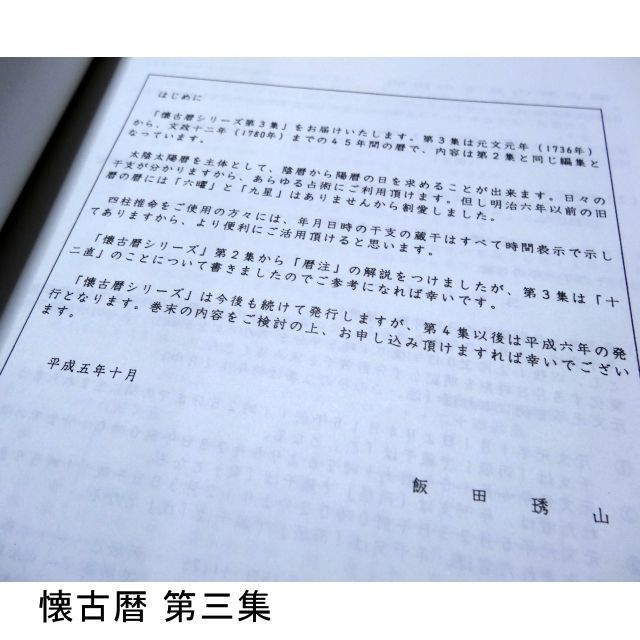 はじめに
「懐古暦シリーズ第３集」をお届けいたします。第３集は元文元年（1736年）
から、文政十二年（1780年）までの４５年間の暦で、内容は第２集と同じ編集と
なっています。
太陰太陽暦を主体として、陰暦から陽暦の日を求めることが出来ます。日々の
干支が分かりますから、あらゆる占術にご利用頂けます。但し明治六年以前の旧
暦の暦には「六曜」と「九星」はありませんから割愛しました。
四柱推命をご使用の方々には、年月日時の干支の蔵干はすべて時間表示で示し
てありますから、より便利にご活用頂けると思います。
「懐古暦シリーズ」第２集から「暦注」の解説をつけましたが、第３集は「十
二直」のことについて書きましたのでご参考になれば幸いです。
「懐古暦シリーズ」は今後も続けて発行しますが、第４集以後は平成六年の発
行となります。巻末の内容をご検討の上、お申し込み頂けますれば幸いでござい
ます。
平成五年十月
飯田琇山
懐古暦 第三集